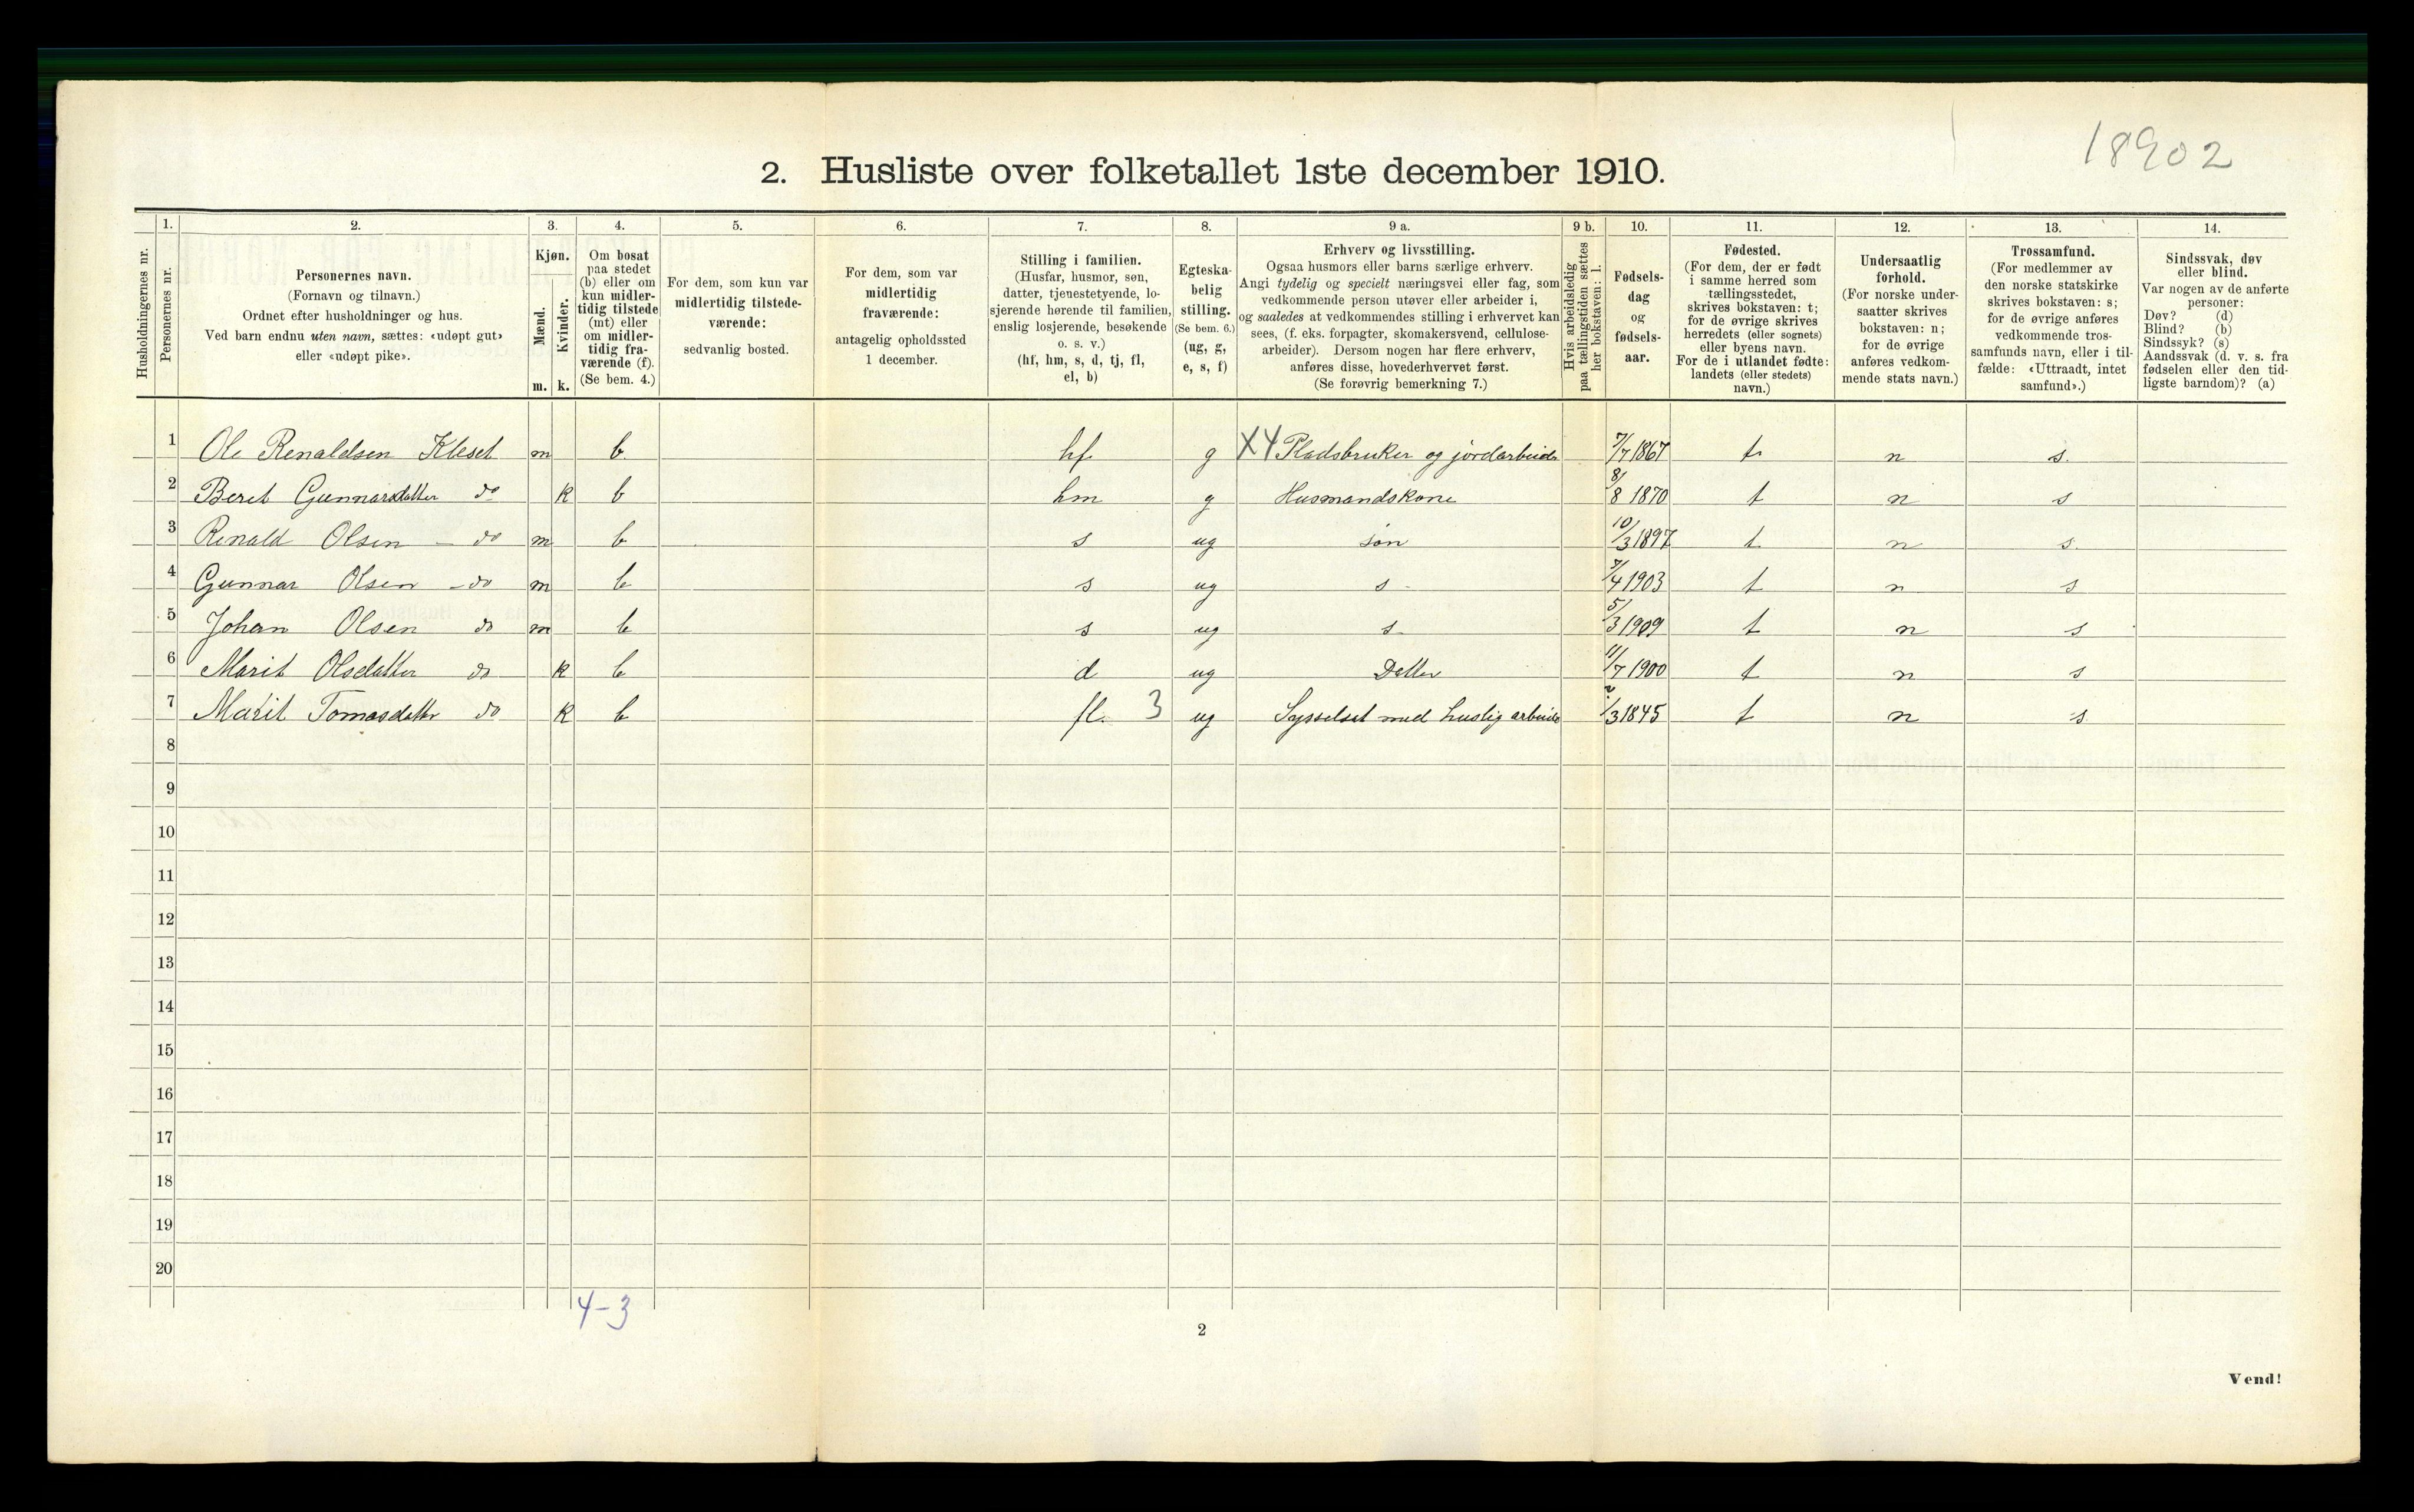 18902
2. Husliste over folketallet 1ste december 1910.
Husholdningernes nr.
1.
Personernes nr.
2.
Personernes navn.
(Fornavn og tilnavn.)
Ordnet efter husholdninger og hus.
Ved barn endnu uten navn, sættes: «udøpt gut»
eller «udøpt pike».
3.
Kjøn.
Mænd.
Kvinder.
m. k.
4.
Om bosat
paa stedet
(b) eller om
kun midler-
tidig tilstede
(mt) eller
om midler-
tidig fra-
værende (f).
(Se bem. 4.)
5.
For dem, som kun var
midlertidig tilstede-
værende:
sedvanlig bosted.
6.
For dem, som var
midlertidig
fraværende:
antagelig opholdssted
1 december.
7.
Stilling i familien.
(Husfar, husmor, søn,
datter, tjenestetyende, lo-
sjerende hørende til familien,
enslig losjerende, besøkende
o. s. v.)
(hf, hm, s, d, tj, fl,
el, b)
8.
Egteska-
belig
stilling.
(Se bem. 6.)
(ug, g,
e, s, f)
9 a.
Erhverv og livsstilling.
Ogsaa husmors eller barns særlige erhverv.
Angi tydelig og specielt næringsvei eller fag, som
vedkommende person utøver eller arbeider i,
og saaledes at vedkommendes stilling i erhvervet kan
sees, (f. eks. forpagter, skomakersvend, cellulose-
arbeider). Dersom nogen har flere erhverv,
anføres disse, hovederhvervet først.
(Se forøvrig bemerkning 7.)
9 b.
Hvis arbeidsledig
paa tællingstiden sættes
her bokstaven: l.
10.
Fødsels-
dag
og
fødsels-
aar.
11.
Fødested.
(For dem, der er født
i samme herred som
tællingsstedet,
skrives bokstaven: t;
for de øvrige skrives
herredets (eller sognets)
eller byens navn.
For de i utlandet fødte:
landets (eller stedets)
navn.)
12.
Undersaatlig
forhold.
(For norske under-
saatter skrives
bokstaven: n;
for de øvrige
anføres vedkom-
mende stats navn.)
13.
Trossamfund.
(For medlemmer av
den norske statskirke
skrives bokstaven: s;
for de øvrige anføres
vedkommende tros-
samfunds navn, eller i til-
fælde: «Uttraadt, intet
samfund».)
14.
Sindssvak, døv
eller blind.
Var nogen av de anførte
personer:
Døv? (d)
Blind? (b)
Sindssyk? (s)
Aandssvak (d. v. s. fra
fødselen eller den tid-
ligste barndom)? (a)
1 Ole Renaldsen Kleset m b hf g X4 Pladsbruker og jordarbeide 7/7 1867 t n s.
2 Beret Gunnarsdatter do k b hm g Husmandskone 8/8 1870 t n s
3 Renald Olsen - do m b s ug søn 10/3 1897 t n s.
4 Gunnar Olsen - do m b s ug s - 7/4 1903 t n s
5 Johan Olsen do m b s ug s - 5/3 1909 t n s
6 Marit Olsdatter do k b d ug Datter 11/7 1900 t n s
7 Marit Tomasdattr do k b fl. 3 ug Sysselset med huslig arbeide 2/3 1845 t n s
8
9
10
11
12
13
14
15
16
17
18
19
20
4-3
2
Vend!